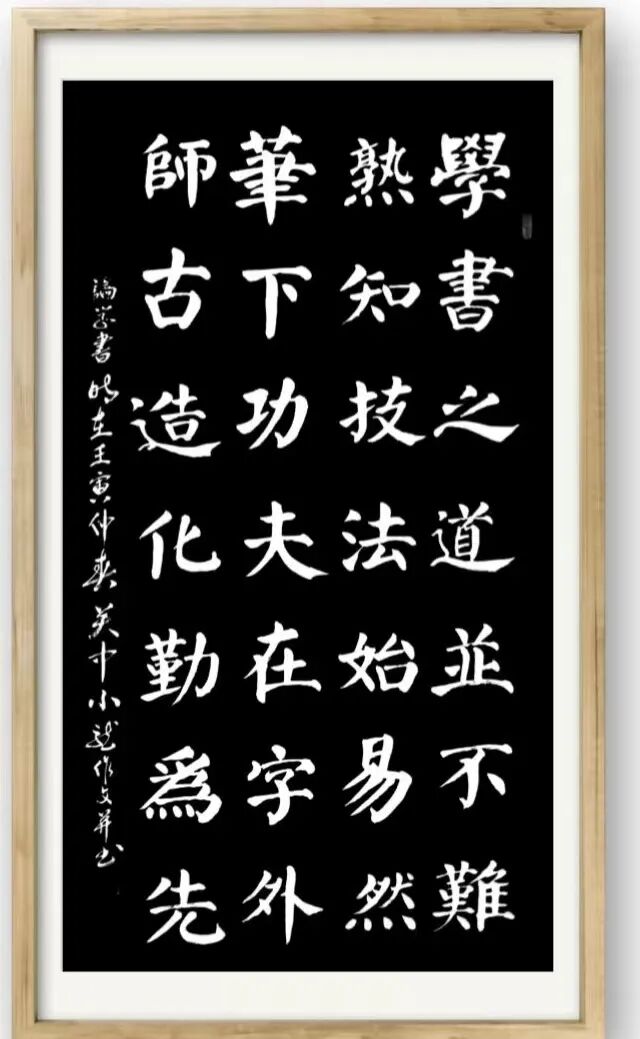 學書之道並不難
熟知技法始易然
筆下功夫在字外
師古造化勤爲先
書 時在壬寅仲春 关中小龍作文并书